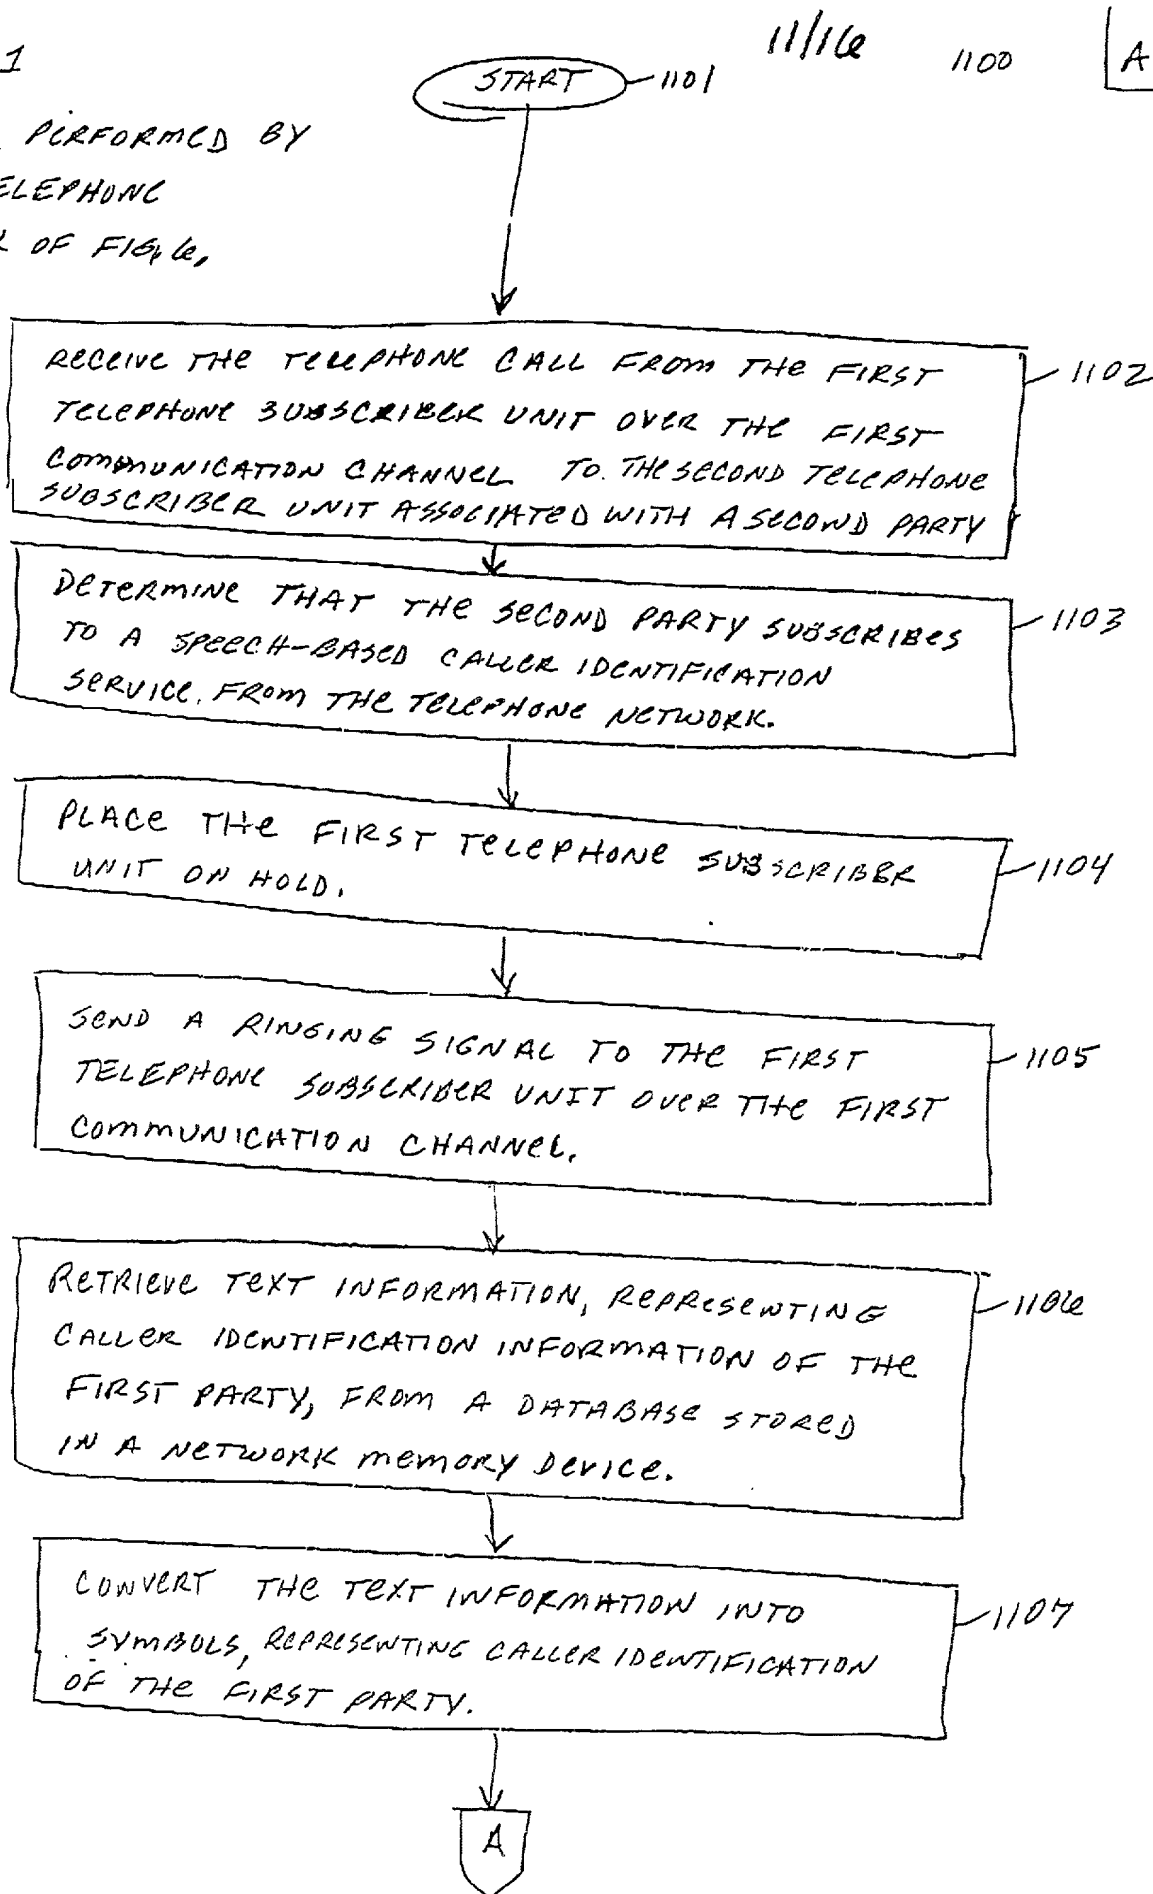 11/16
1100
A
1
START
1101
PERFORMED BY
ELEPHONE
OF FIG. 6.
RECEIVE THE TELEPHONE CALL FROM THE FIRST
TELEPHONE SUBSCRIBER UNIT OVER THE FIRST
COMMUNICATION CHANNEL TO THE SECOND TELEPHONE
SUBSCRIBER UNIT ASSOCIATED WITH A SECOND PARTY
1102
DETERMINE THAT THE SECOND PARTY SUBSCRIBES
TO A SPEECH-BASED CALLER IDENTIFICATION
SERVICE. FROM THE TELEPHONE NETWORK.
1103
PLACE THE FIRST TELEPHONE SUBSCRIBER
UNIT ON HOLD.
1104
SEND A RINGING SIGNAL TO THE FIRST
TELEPHONE SUBSCRIBER UNIT OVER THE FIRST
COMMUNICATION CHANNEL.
1105
RETRIEVE TEXT INFORMATION, REPRESENTING
CALLER IDENTIFICATION INFORMATION OF THE
FIRST PARTY, FROM A DATABASE STORED
IN A NETWORK MEMORY DEVICE.
1106
CONVERT THE TEXT INFORMATION INTO
SYMBOLS, REPRESENTING CALLER IDENTIFICATION
OF THE FIRST PARTY.
1107
A